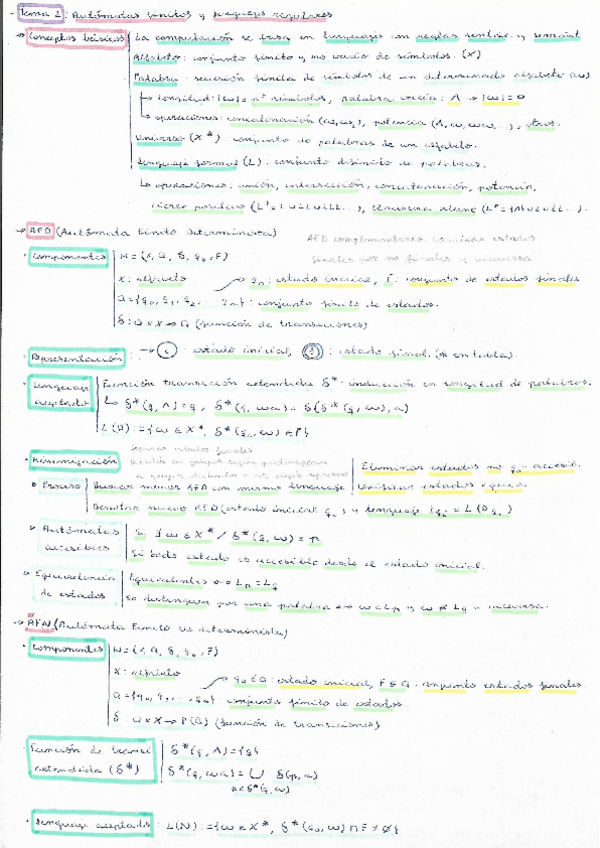 Tema 1: Autómatas finitos y lenguajes regulares
→ Conceptos básicos | La computación se basa en lenguajes con reglas sentác. y semánt
Alfabeto: conjunto finito y no vacío de símbolos. (X)
Palabra: sucesión finita de símbolos de un determinado alfabeto (ω)
↳ longitud: |ω| = nº símbolos, palabra vacía: Λ → |ω| = 0
↳ operaciones: concatenación (ω₁ω₂), potencia (Λ, ω, ωω, ...), otros.
Universo (X*): conjunto de palabras de un alfabeto.
Lenguaje formal (L): conjunto de palabras.
↳ operaciones: unión, intersección, concatenación, potencia,
cierre positivo (L⁺ = L ∪ LL ∪ LLL...), clausura Kleene (L* = {Λ} ∪ L ∪ LL...).
→ AFD (Autómata Finito Determinista)
AFD complementario: cambiar estados
finales por no finales y viceversa
· Componentes | M = (X, Q, δ, q₀, F)
X: alfabeto → q₀: estado inicial, F: conjunto de estados finales
Q = {q₀, q₁, q₂, ... qₙ}: conjunto finito de estados.
δ: Q × X → Q (función de transiciones)
· Representación: estado inicial, estado final. (* en tabla).
· Lenguaje aceptado | Función transición extendida δ*: inducción en longitud de palabras.
↳ δ*(q, Λ) = q, δ*(q, ωa) = δ(δ*(q, ω), a)
L(D) = {ω ∈ X*, δ*(q₀, ω) ∈ F}
Separar estados finales
· Minimización
Eliminar estados no q₀-accesib.
▫ Proceso | Buscar menor AFD con mismo lenguaje
Unificar estados equiv.
nuevo AFD (estado inicial q₀) y lenguaje
▫ Autómatas accesibles | Si ∃ ω ∈ X* / δ*(q, ω) = p
Si todo estado es accesible desde el estado inicial.
▫ Equivalencia de estados | Equivalentes ↔ Lp = Lq
Se distinguen por una palabra ↔ ω ∈ Lp y ω ∉ Lq o inversa.
→ AFN (Autómata Finito No determinista)
· Componentes | N = (X, Q, δ, q₀, F)
X: alfabeto → q₀ ∈ Q: estado inicial, F ⊆ Q: conjunto estados finales
Q = {q₀, q₁, ..., qₙ}: conjunto finito de estados.
δ: Q × X → P(Q) (función de transiciones)
· Función de transi | δ*(q, Λ) = {q}
extendida (δ*) | δ*(q, ωa) = ∪ δ(p, a)
p ∈ δ*(q, ω)
· Lenguaje aceptado: L(N) = {ω ∈ X*, δ*(q₀, ω) ∩ F ≠ ∅}